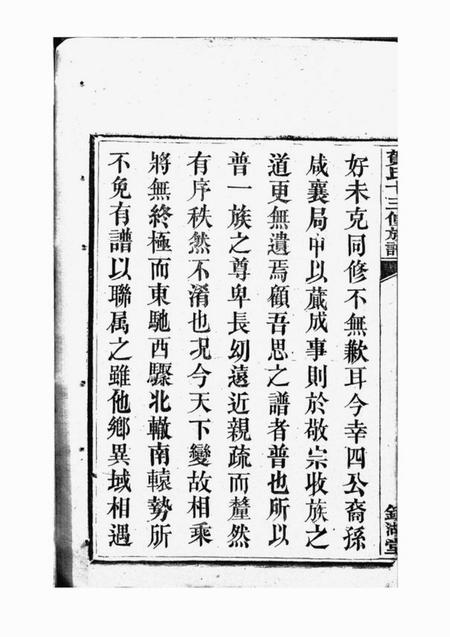 氏十三修族譜
好未克同修不無歉耳今幸四公裔孫
咸襄局中以蕆成事則於敬宗收族之
道更無遺焉顧吾思之譜者普也所以
普一族之尊卑長幼遠近親疏而釐然
有序秩然不淆也况今天下變故相乘
將無終極而東馳西驟北轍南轅勢所
不免有譜以聯屬之雖他鄉異域相遇